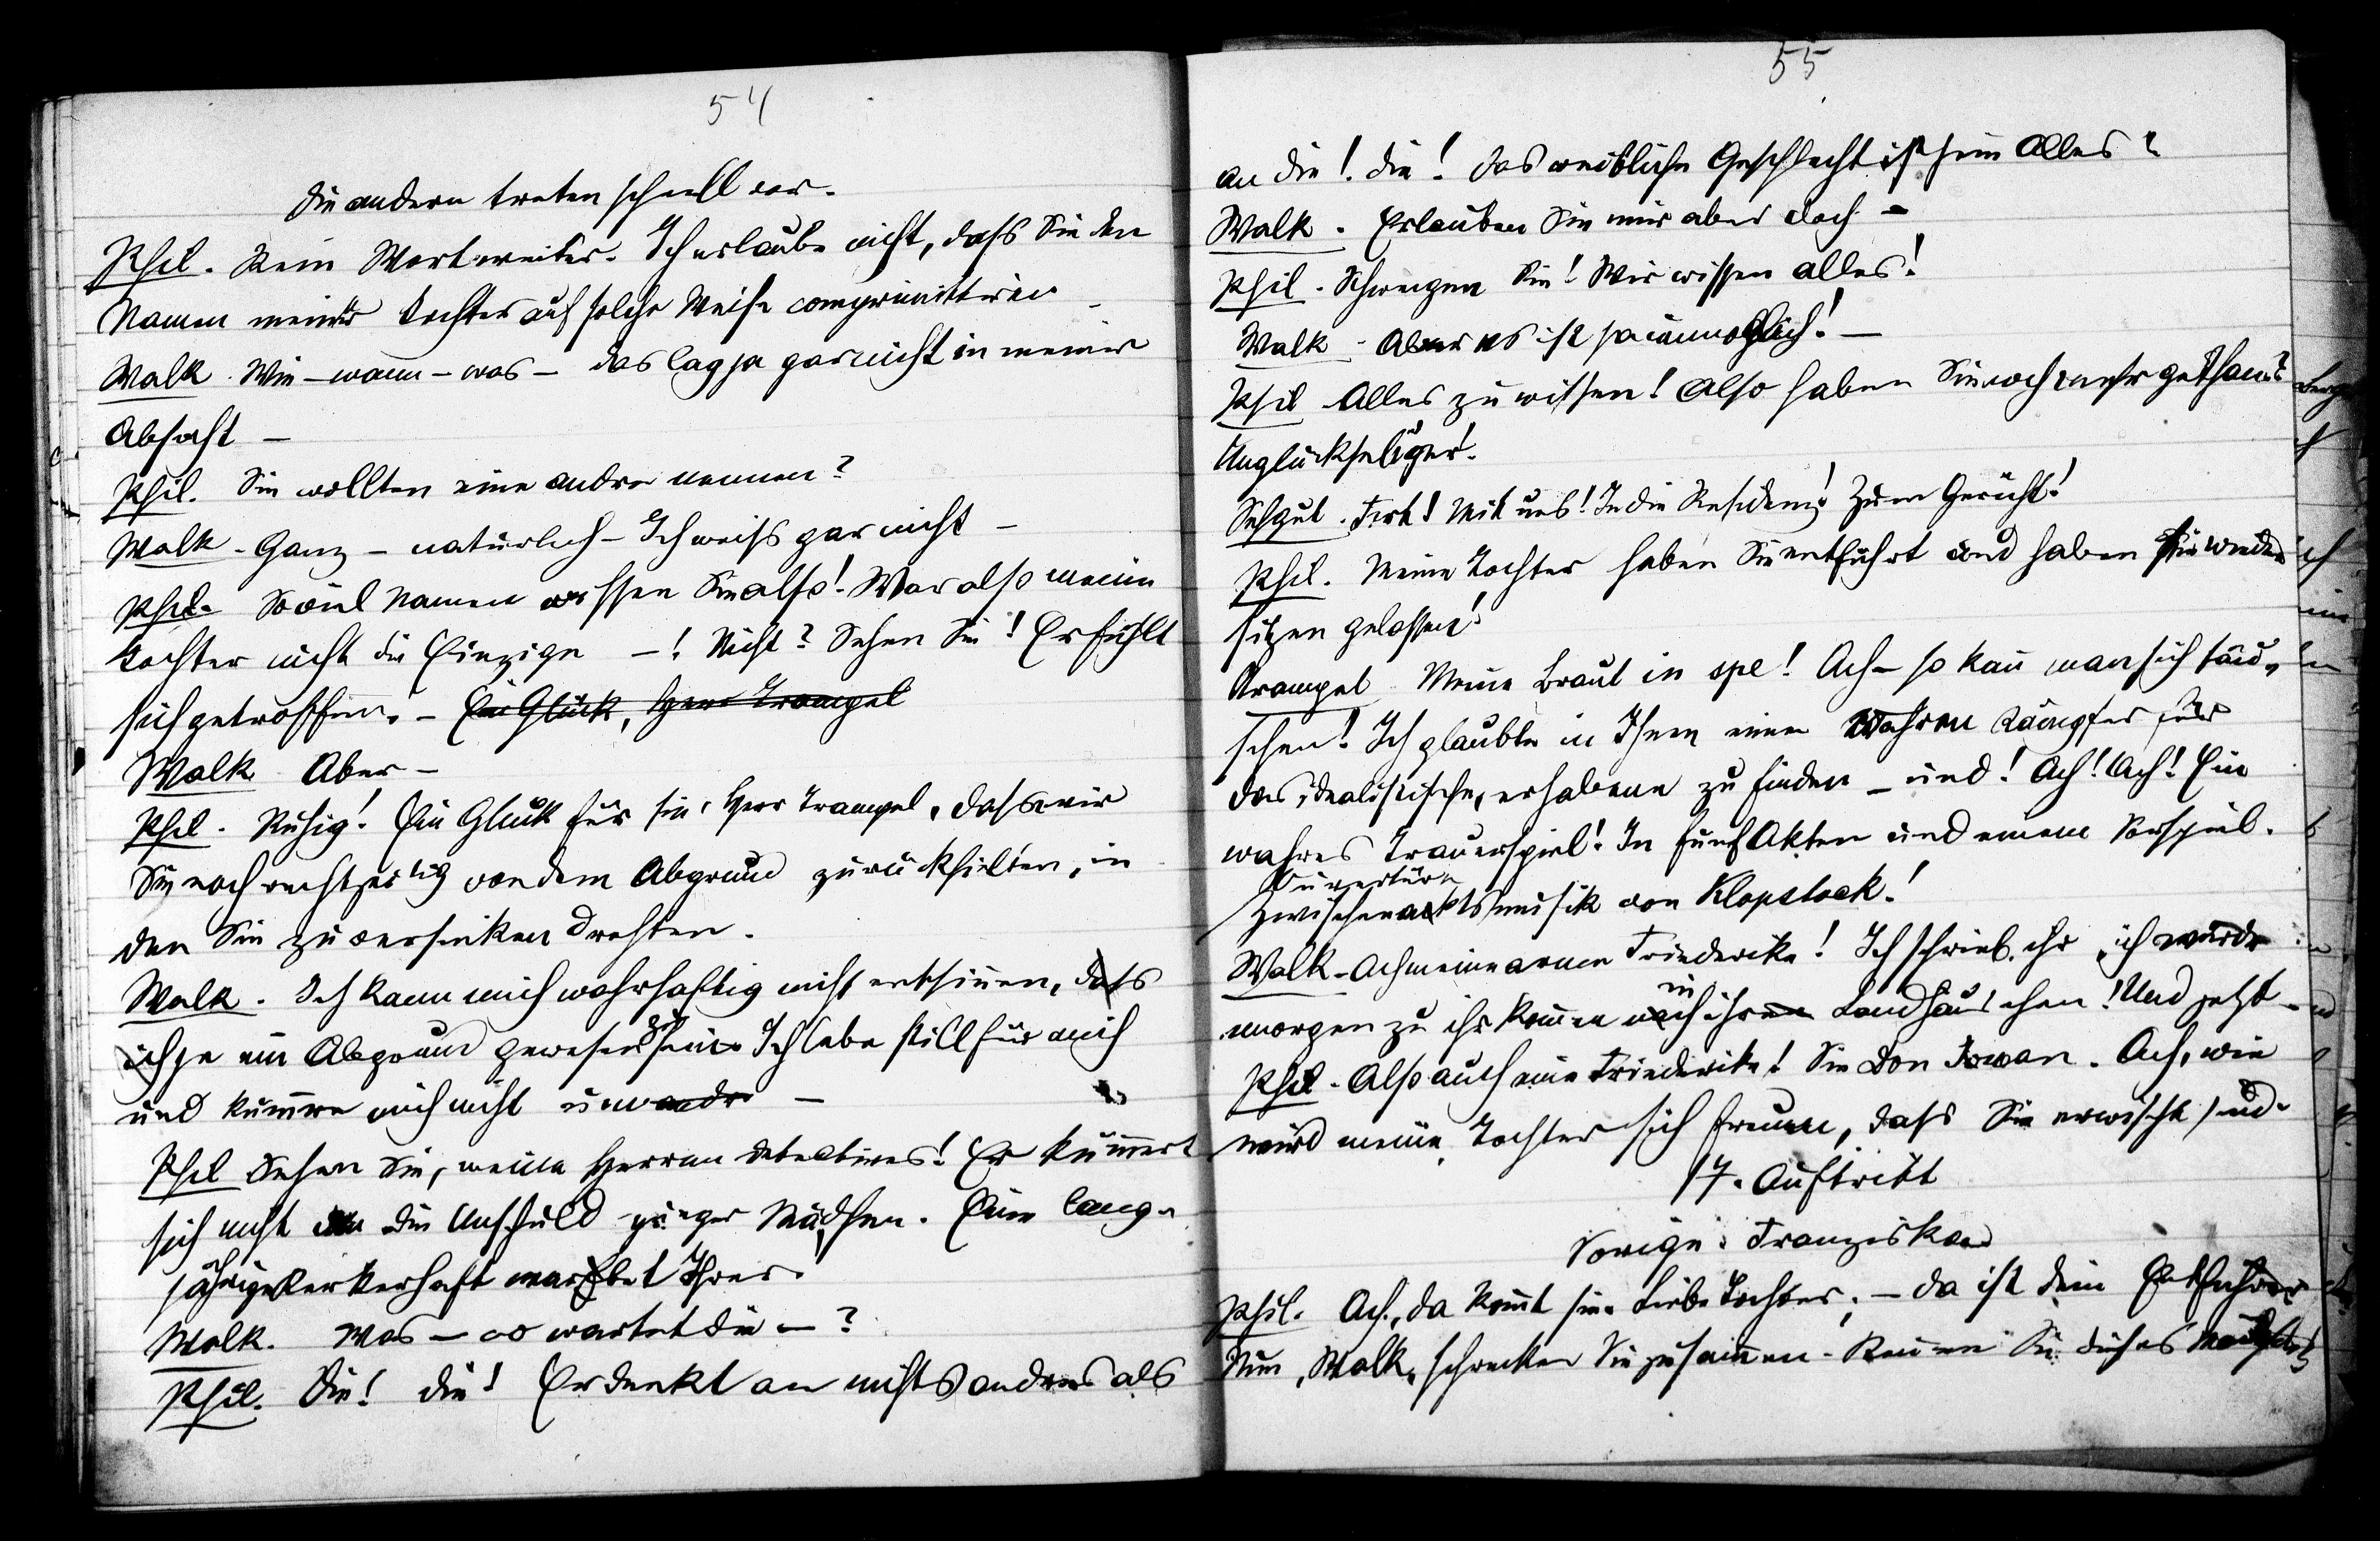 54
die andern treten schnell vor.
Phil. Kein Wort weiter. Ich erlaube nicht, dass Sie den
Namen meiner Tochter auf solche Weise compromittiren
Walk. Wie – wann – was – das lag ja gar nicht in meiner
Absicht –
Phil. Sie wollten eine andre nennen?
Walk – Ganz – natürlich – Ich weiss gar nicht –
Phil. Soviel Namen wissen Sie also! War also meine
Tochter nicht die Einzige –! Nicht? Sehen Sie! Er fühlt
sich getroffen. – Ein Glück, Herr Trampel
Walk Aber –
Phil. Ruhig! Ein Glück für sie, Herr Trampel, dass wir
Sie noch rechtzeitig von dem Abgrund zurückhielten, in
den Sie zu versinken drohten.
Walk. Ich kann mich wahrhaftig nicht entsinnen, dass
ich je ein Abgrund gewesen zu sein. Ich lebe still für mich
und kümmre mich nicht um andre –
Phil Sehen Sie, meine Herren Detectives! Er kümmert
sich nicht um die Unschuld junger Mädchen. Eine lang-
jährige Kerkerhaft wartet Ihrer.
Walk. Was – wo wartet die –?
Phil. Die! die! Er denkt an nichts andres als
55
an die! die! das weibliche Geschlecht ist sein Alles!
Walk. Erlauben Sie mir aber doch –
Phil. Schweigen Sie! Wir wissen alles!
Walk – Aber es ist ja unmöglich! –
Phil Alles zu wissen! Also haben Sie noch mehr gethan?
Unglückseliger!
Sehgut. Fort! Mit uns! In die Residenz! Zum Gericht!
Phil. Meine Tochter haben Sie entführt und haben sie wieder
sitzen gelassen!
Trampel Meine Braut in spe! Ach – so kann man sich täu-
schen! Ich glaubte in Ihnen einen wahren Kämpfer für
das idealistische, erhabene zu finden – und! Ach! Ach! Ein
wahres Trauerspiel! In fünf Akten und einem Vorspiel.
Ouvertüre
Zwischenaktsmusik von Klopstock!
Walk – Ach meine arme Friederike! Ich schrieb ihr, ich würde
morgen zu ihr kommen in ihr Landhäuschen! Und jetzt –
Phil – Also auch eine Friederike! Sie Don Juan. Ach, wie
wird meine Tochter sich freuen, dass Sie erwischt sind.
17. Auftritt
Vorige. Franziska
Phil. Ach, da kommt sie. Liebe Tochter, – da ist dein Entführer
Nun, Walk, schrecken Sie zusammen – Kennen Sie dieses Mädchen